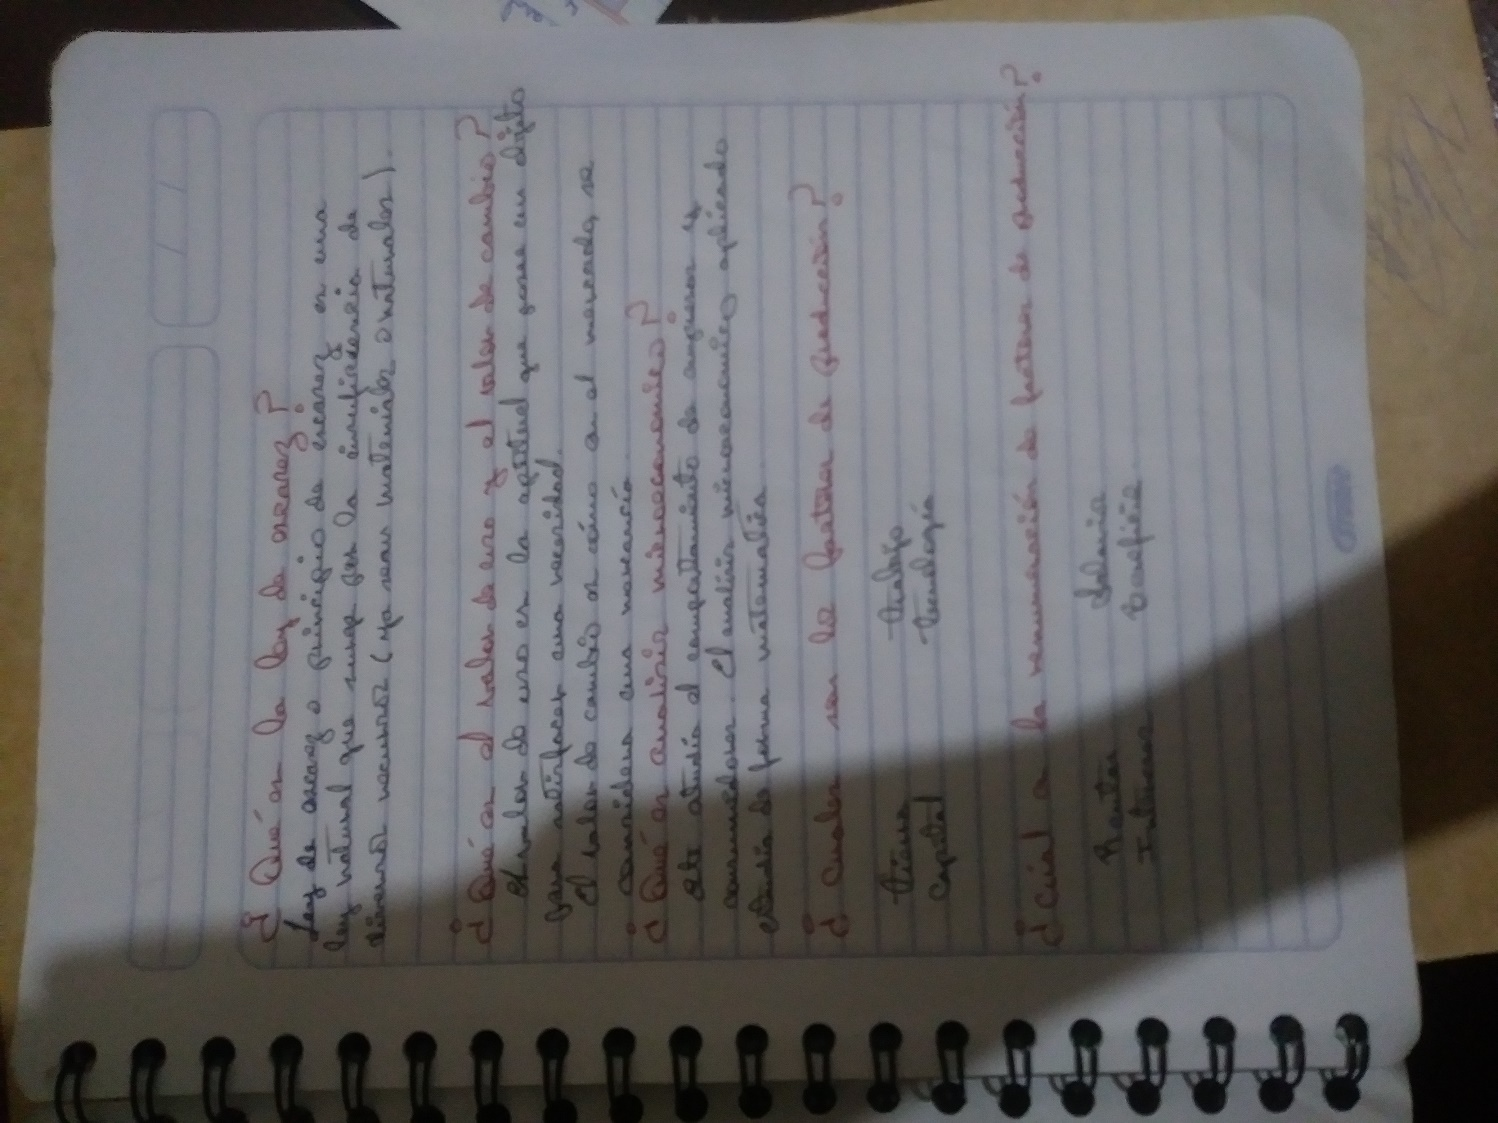 ¿Qué es la ley de escasez?
Ley de escasez o principio de escasez es una
ley natural que surge por la insuficiencia de
diversos recursos (ya sean materiales o naturales).
¿Qué es el valor de uso y el valor de cambio?
El valor de uso es la aptitud que posee un objeto
para satisfacer una necesidad.
El valor de cambio es cómo en el mercado, se
considera una mercancía
¿Qué es analisis microeconomico?
este estudia el comportamiento de empresas y
consumidores. El analisis microeconomico aplicado
estudia de forma matematica.
¿Cuales son los factores de producción?
tierra trabajo
capital tecnología
¿Cuál es la remuneración de factores de producción?
Rentas Salario
Intereses Beneficio